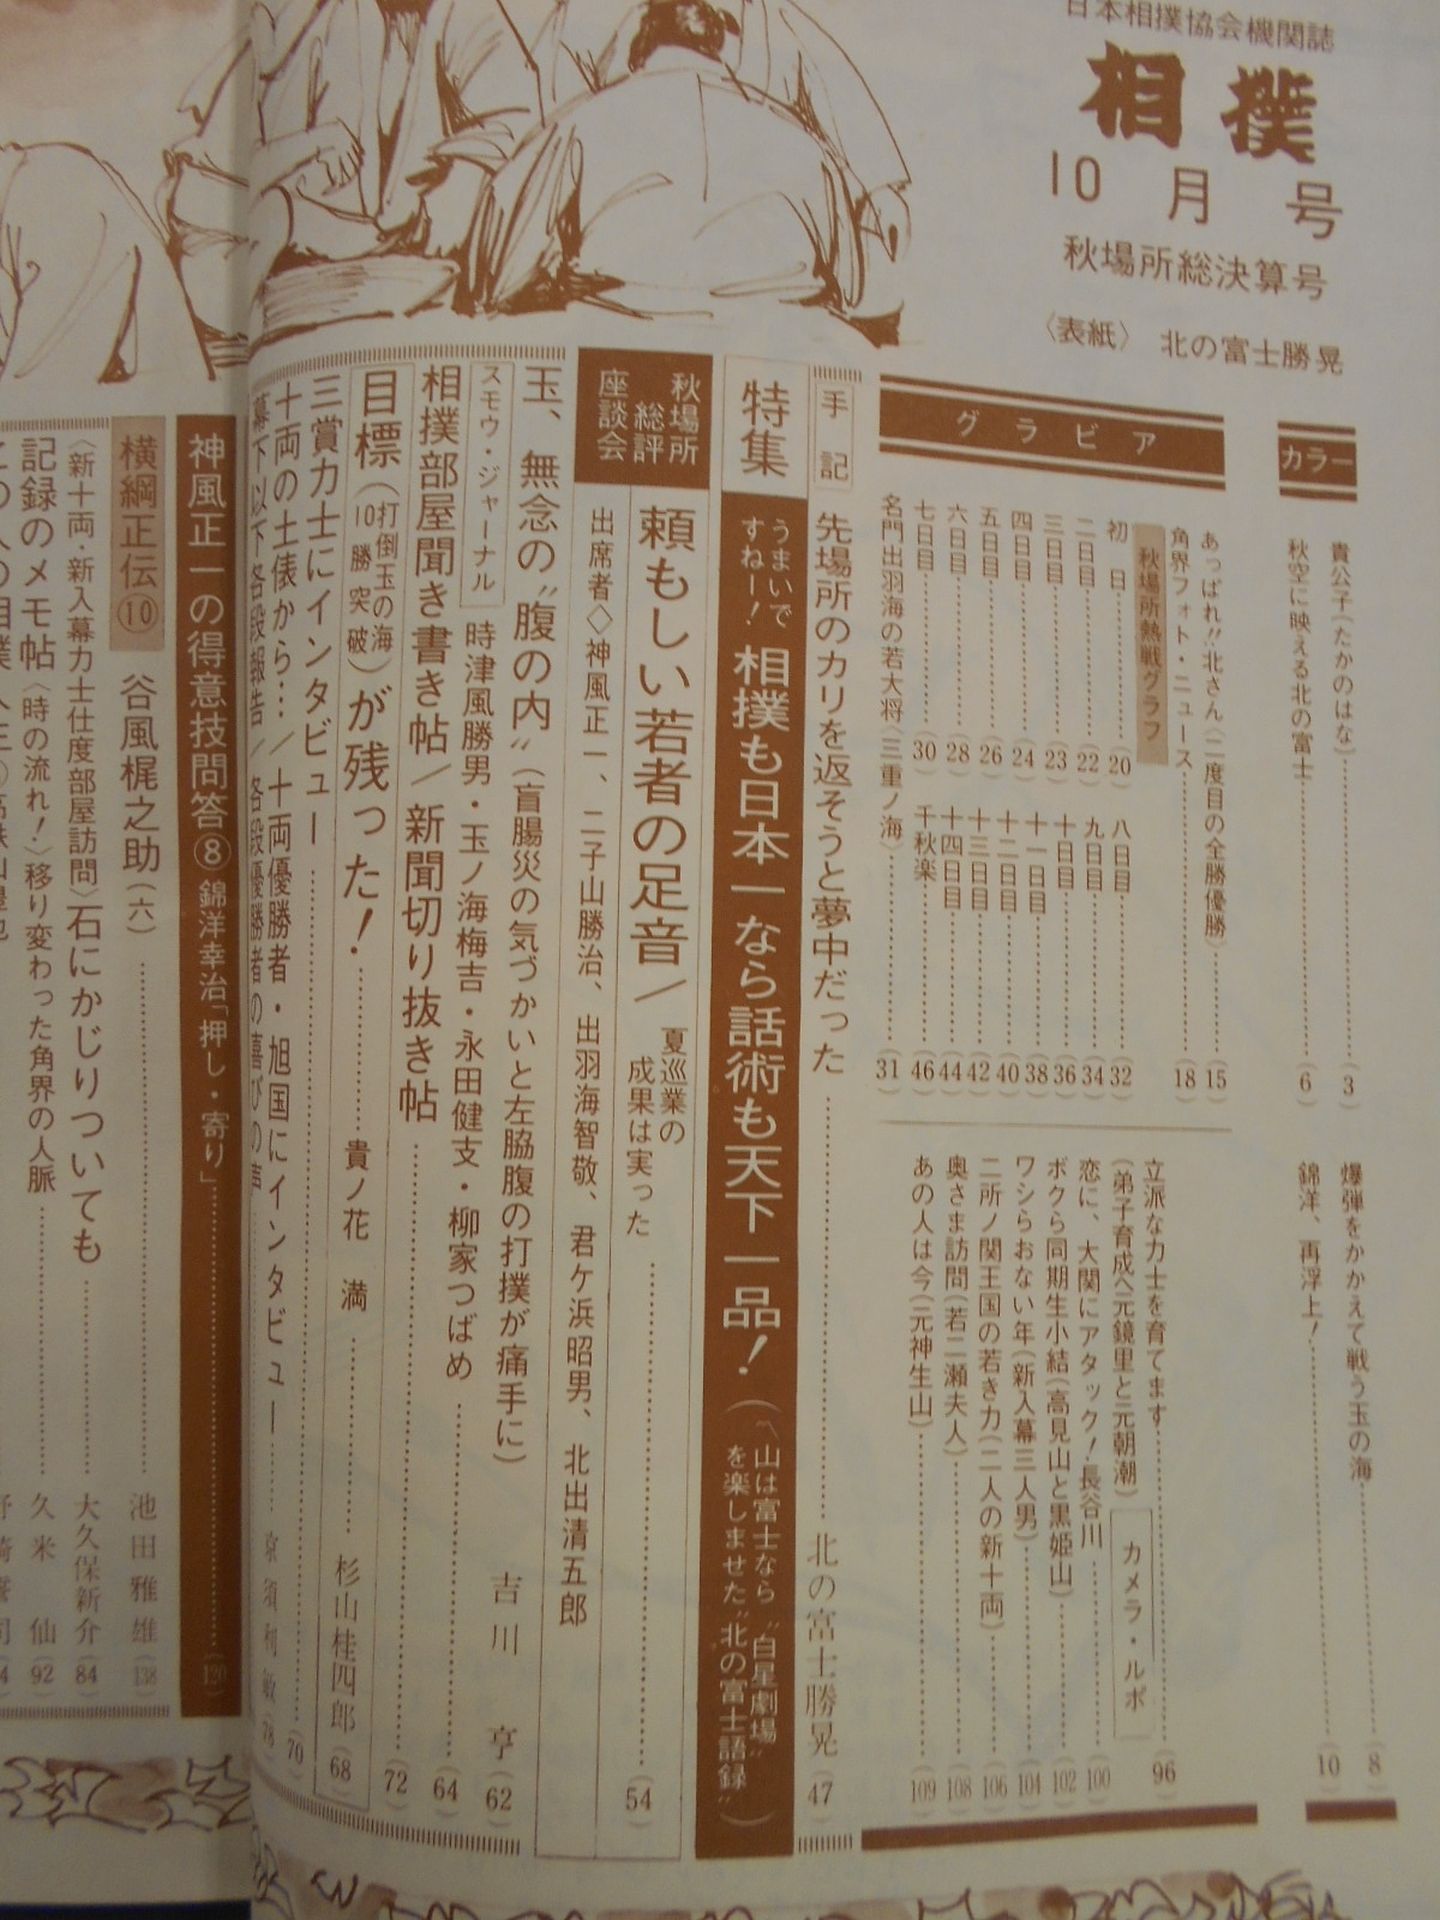 日本相撲協会機関誌
相撲
10月号
秋場所総決算号
〈表紙〉 北の富士勝晃
カラー
貴公子(たかのはな)(3)
秋空に映える北の富士(6)
爆弾をかかえて戦う玉の海(8)
錦洋、再浮上!(10)
グラビア
あっぱれ!!北さん〈二度目の全勝優勝〉(15)
角界フォト・ニュース(18)
秋場所熱戦グラフ
初日(20)
二日目(22)
三日目(23)
四日目(24)
五日目(26)
六日目(28)
七日目(30)
八日目(32)
九日目(34)
十日目(36)
十一日目(38)
十二日目(40)
十三日目(42)
十四日目(44)
千秋楽(46)
名門出羽海の若大将〈三重ノ海〉(31)
立派な力士を育てます(96)
(弟子育成へ元鏡里と元朝潮)
カメラ・ルポ
恋に、大関にアタック!長谷川(100)
ボクら同期生小結(高見山と黒姫山)(102)
ワシらおない年(新入幕三人男)(104)
二所ノ関王国の若き力(二人の新十両)(106)
奥さま訪問(若二瀬夫人)(108)
あの人は今(元神生山)(109)
手記
先場所のカリを返そうと夢中だった 北の富士勝晃(47)
特集
うまいですねー!
相撲も日本一なら話術も天下一品!
(〝山は富士なら〟白星劇場〟を楽しませた〝北の富士語録〟)
秋場所総評座談会
頼もしい若者の足音/ 夏巡業の成果は実った(54)
出席者◇神風正一、二子山勝治、出羽海智敬、君ケ浜昭男、北出清五郎
玉、無念の〝腹の内〟(盲腸炎の気づかいと左脇腹の打撲が痛手に) 吉川 亨(62)
スモウ・ジャーナル
時津風勝男・玉ノ海梅吉・永田健支・柳家つばめ(64)
相撲部屋聞き書き帖/新聞切り抜き帖(72)
目標(打倒玉の海 10勝突破)が残った! 貴ノ花 満 杉山桂四郎(68)
三賞力士にインタビュー(70)
十両の土俵から…/十両優勝者・旭国にインタビュー
幕下以下各段報告/各段優勝者の喜びの声(78)
神風正一の得意技問答⑧ 錦洋幸治「押し・寄り」(120)
横綱正伝⑩ 谷風梶之助(六) 池田雅雄(138)
〈新十両・新入幕力士仕度部屋訪問〉石にかじりついても 大久保新介(84)
記録のメモ帖〈時の流れ!〉移り変わった角界の人脈 久米 仙(92)